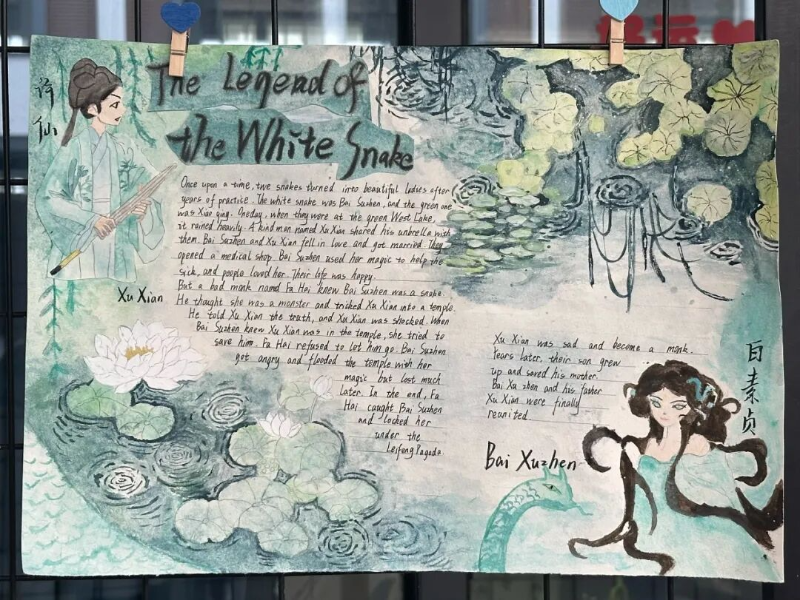 好运
许仙
The Legend of
the White Snake
Once upon a time, two snakes turned into beautiful ladies after
years of practice. The white snake was Bai Suzhen, and the green one
was Xiao qing. Oneday, when they were at the green West Lake,
it rained heavily. A kind man named Xu Xian shared his unbrella with
them. Bai Suzhen and Xu Xian fell in love and got married. They
opened a medical shop. Bai Suzhen used her magic to help the
sick, and people loved her. Their life was happy.
But a bad monk named Fa Hai knew Bai Suzhen was a snake.
He thought she was a monster and triked Xu Xian into a temple.
He told Xu Xian the truth, and Xu Xian was shocked. When
Bai Suzhen knew Xu Xian was in the temple, she tried to
save him. Fa Hai refused to let him go. Bai Suzhen
got angry and flooded the temple with her
magic but lost much
later. In the end, Fa
Hai caught Bai Suzhen
and locked her
under the
Leifeng Pagoda.
Xu Xian
Xu Xian was sad and become a monk.
Years later, their son grew
up and saved his mother.
Bai Xu zhen and his father
Xu Xian were finally
reunited
Bai Xuzhen
白素贞